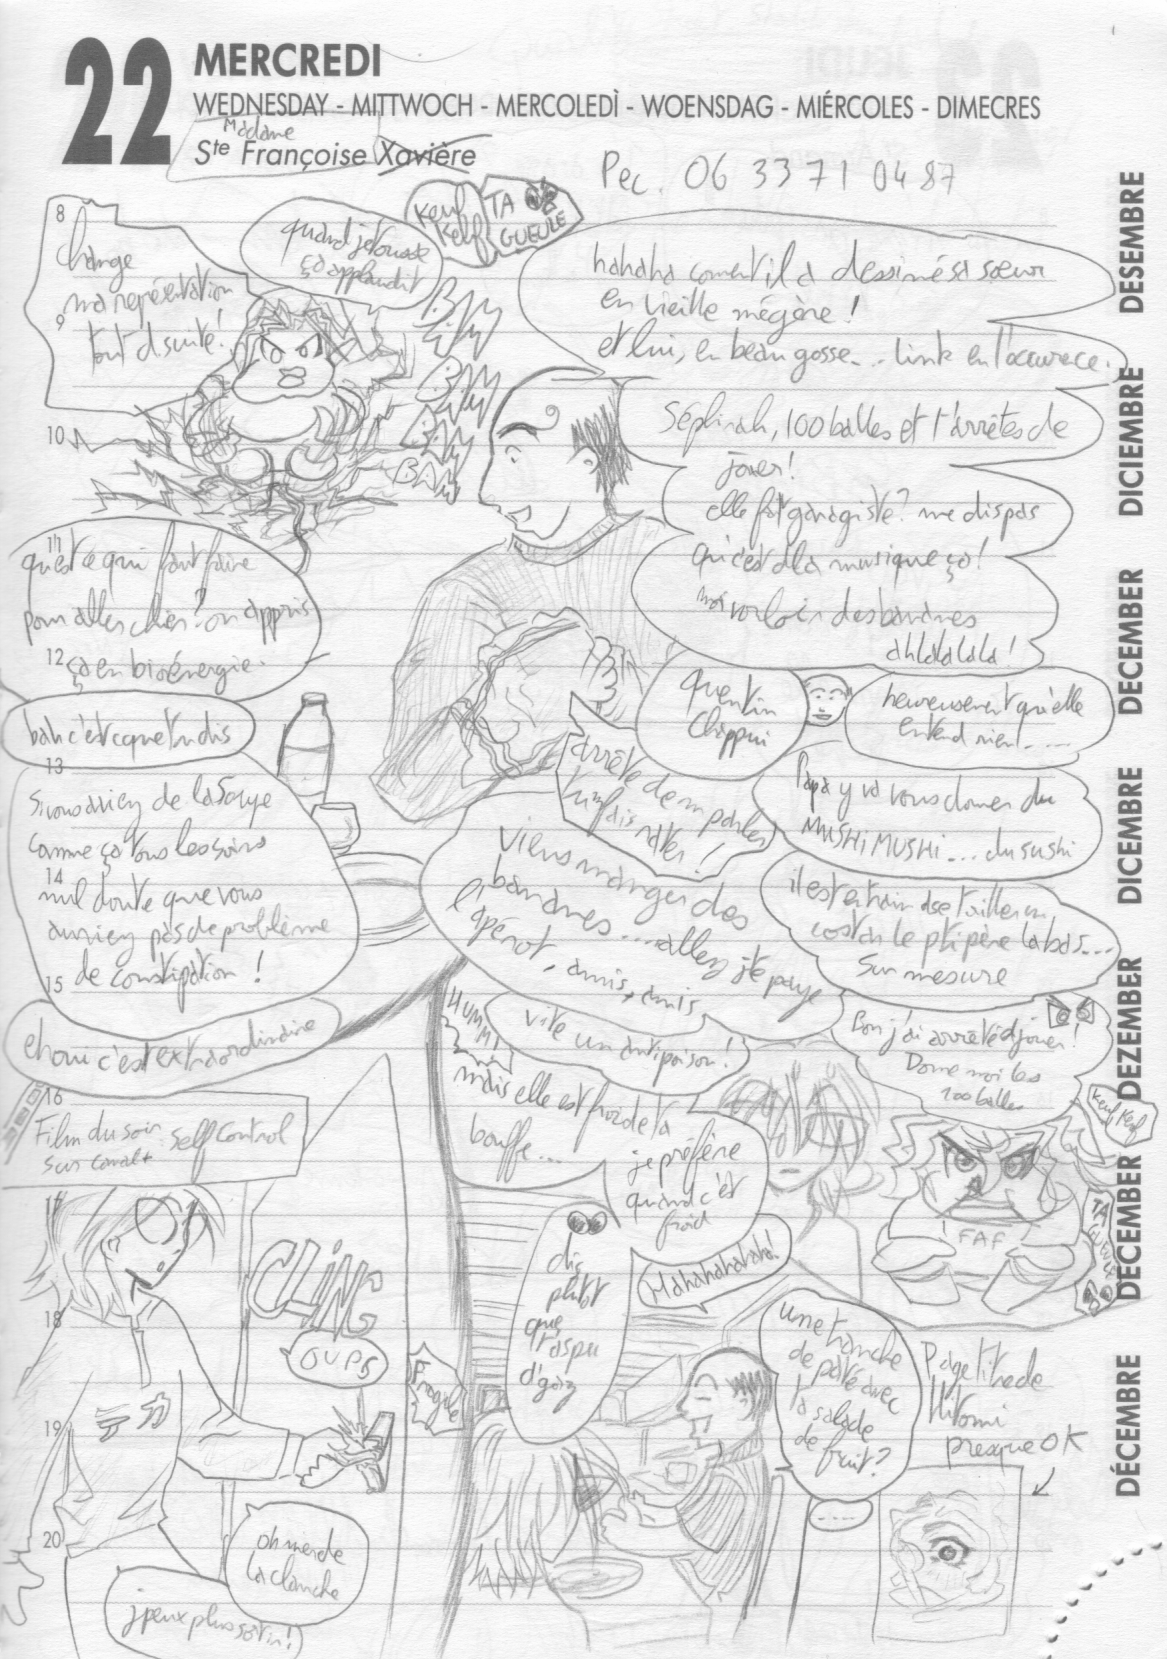 22 MERCREDI
WEDNESDAY - MITTWOCH - MERCOLEDÌ - WOENSDAG - MIÉRCOLES - DIMECRES
Madame
Ste Françoise Xavière
Pec. 06 33 71 04 87
8
9
10
11
12
13
14
15
16
17
18
19
20
change
ma représentation
tout d suite!
quand je tousse
ça applaudit
Keuf
Keuf
TA
GUEULE
BAM
BAM
BAM
BAM
hahaha coment il a dessiné sa sœur
en vieille mégère !
et lui, en beau gosse... Link en l'occurence.
Séphirah, 100 balles et t'arrêtes de
jouer!
elle fait garagiste? me dis pas
qu'c'est d la musique ça!
moi vouloir des bananes
ahlalalala!
qu'est ce qui faut faire
pour aller chier? on appuis
ça en bioénergie.
bah c'est c que tu dis
quentin
Chippui
heureusement qu'elle
entend rien.....
arrête de m parler
tu m fais rater !
Papa y va vous donner du
MUSHI MUSHI.... du sushi
Si vous aviez de la Sauge
comme ça tous les soirs
nul doute que vous
auriez pas de problème
de constipation !
viens manger des
bananes .... allez j te paye
l'apérot, amis, amis
il est en train de se tailler un
costar le pti père la bas....
Sur mesure
eh oui c'est extraordinaire
HUMM!
vite un antipoison!
Bon j'ai arrêté d jouer!
Donne moi les
100 balles
Keuf Keuf
mais elle est froide ta
bouffe...
je préfère
quand c'est
froid
Film du soir: Self Control
sur canal+
FAF
TA
GUEULE
dis
plutôt
que
t'as pu
d'gaz
Mahahahahaha!
CLING
OUPS
Fragile
une tranche
de paté avec
ta salade
de fruit?
.....
Page titre de
Hitomi
presque OK
oh merde
la clanche
j'peux plus sortir!
DESEMBRE
DICIEMBRE
DECEMBER
DICEMBRE
DEZEMBER
DECEMBER
DÉCEMBRE